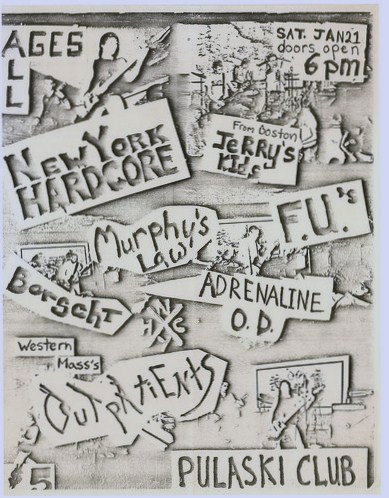 ALL AGES
SAT. JAN 21
doors open
6 pm
NEW YORK
HARDCORE
From Boston
JERRY'S
KIDS
F.U.'s
Murphy's
LAW
Borscht
ADRENALINE
O.D.
N Y
H C
Western
Mass's
OUTPATIENTS
5
PULASKI CLUB